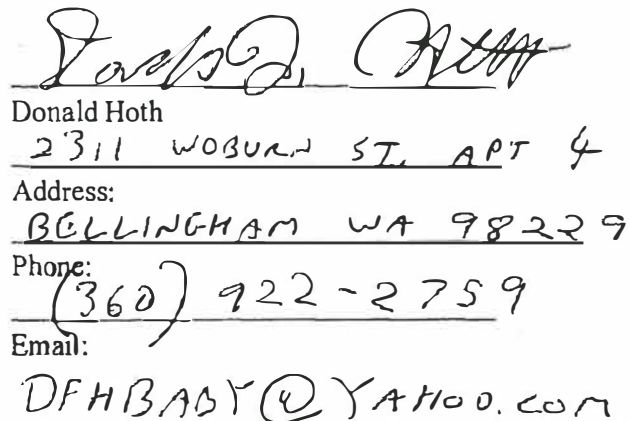 Donald Hoth
2311 WOBURN ST. APT 4
Address:
BELLINGHAM WA 98229
Phone:
(360) 922-2759
Email:
DFHBABY@YAHOO.COM